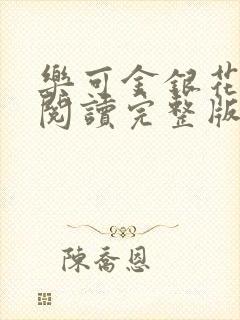 樂可金銀花
閱讀完整版
陳喬恩